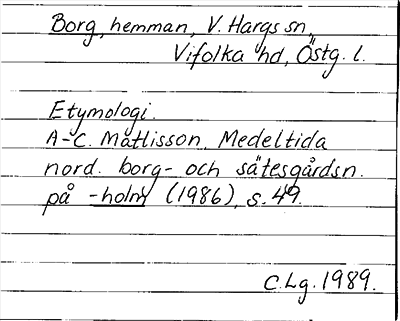 Borg, hemman, V. Hargs sn,
Vifolka hd, Östg. l.
Etymologi.
A-C. Mattisson, Medeltida
nord. borg- och sätesgårdsn.
på -holm (1986), s. 49.
C.Lg. 1989.